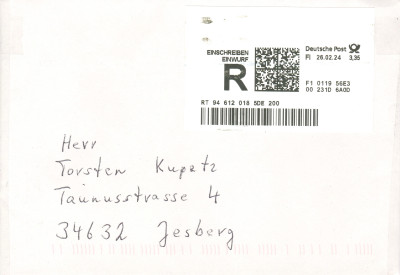 EINSCHREIBEN
EINWURF
R
Deutsche Post
FI 26.02.24 3,35
F1 0119 56E3
00 231D 6A0D
RT 94 612 018 5DE 200
Herr
Torsten Kupetz
Taunusstrasse 4
34632 Jesberg